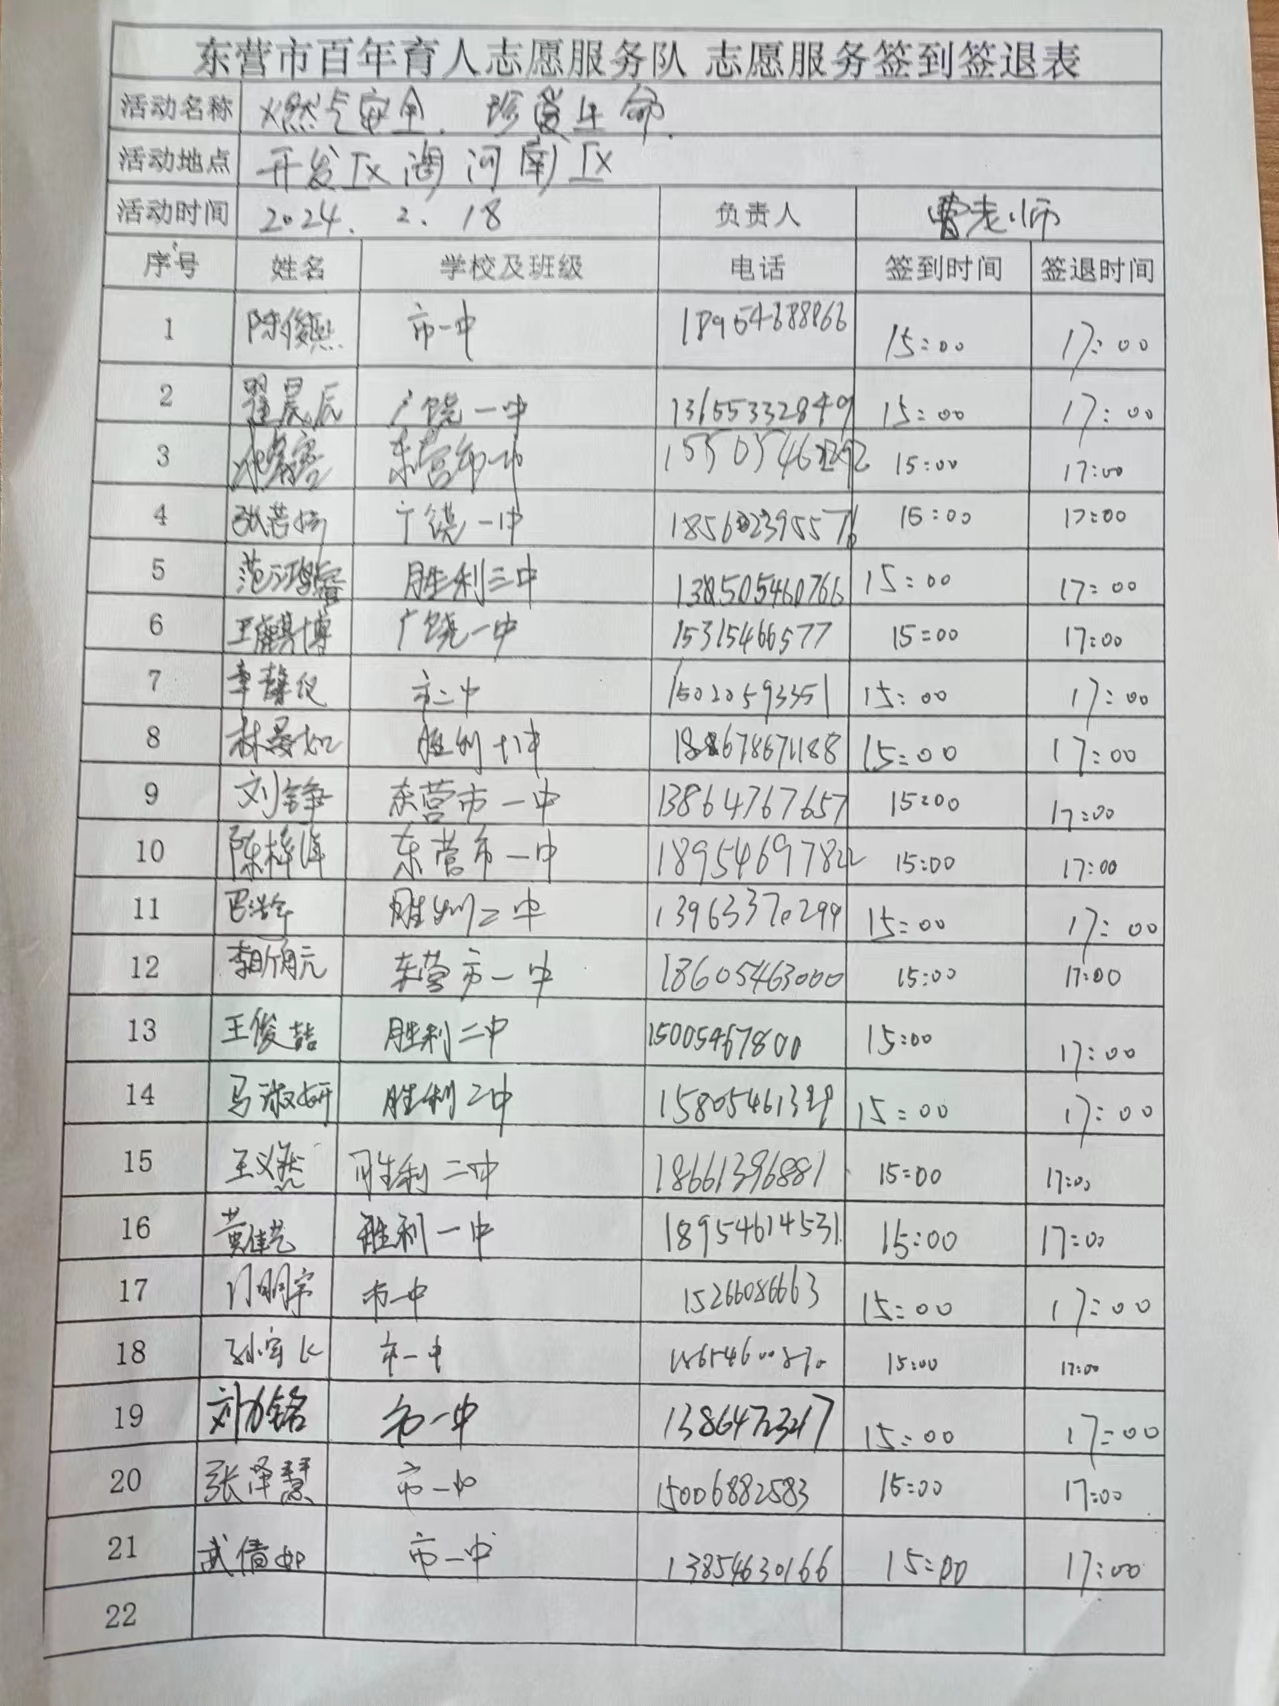 东营市百年育人志愿服务队 志愿服务签到签退表
活动名称 燃气安全. 珍爱生命.
活动地点 开发区 河南区
活动时间 2024. 2. 18 负责人 曹老师
序号 姓名 学校及班级 电话 签到时间 签退时间
1 陈俊熙 市一中 15:00 17:00
2 翟晨辰 广饶一中 13655332849 15:00 17:00
3 东营市一中 15:00 17:00
4 广饶一中 15:00 17:00
5 胜利二中 15:00 17:00
6 王麒博 广饶一中 15315466577 15:00 17:00
7 李馨仪 市二中 15020593351 15:00 17:00
8 林晏如 胜利十中 15:00 17:00
9 刘铮 东营市一中 13864767657 15:00 17:00
10 陈梓洋 东营市一中 18954697822 15:00 17:00
11 巴浩年 胜利二中 13963370299 15:00 17:00
12 东营市一中 18605463000 15:00 17:00
13 王俊喆 胜利二中 15005467800 15:00 17:00
14 马淑妍 胜利二中 15805461329 15:00 17:00
15 王义然 胜利二中 18661396881 15:00 17:00
16 黄佳艺 胜利一中 18954614531 15:00 17:00
17 门明宇 市一中 15266086663 15:00 17:00
18 市一中 15:00 17:00
19 刘力铭 市一中 15:00 17:00
20 张泽慧 市一中 15006882583 15:00 17:00
21 武倩如 市一中 13854630166 15:00 17:00
22